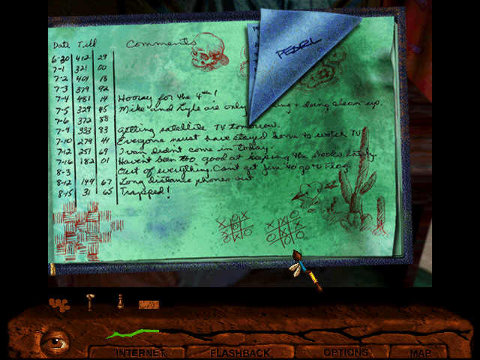 Date Till Comments
6-30 412 29
7-1 321 00
7-2 401 18
7-3 379 92
7-4 481 14 Hooray for the 4th!
7-5 329 45 Mike and Kyle are only doing clean up.
7-6 372 88
7-9 333 83 Getting satellite TV tomorrow.
7-10 279 41 Everyone must have stayed home to watch TV.
7-12 251 69 Ivan didn't come in today.
7-16 182 01 Haven't been too good at keeping the books lately.
8-3 Out of everything. Can't get Jim to go to
8-12 149 67 Long distance phones out.
8-15 31 65 Trapped!
PEARL
INTERNET FLASHBACK OPTIONS MAP